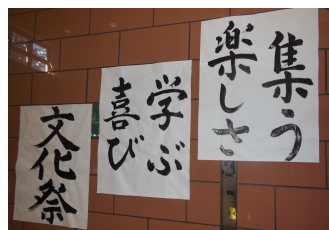 集う
楽しさ
学ぶ
喜び
文化祭